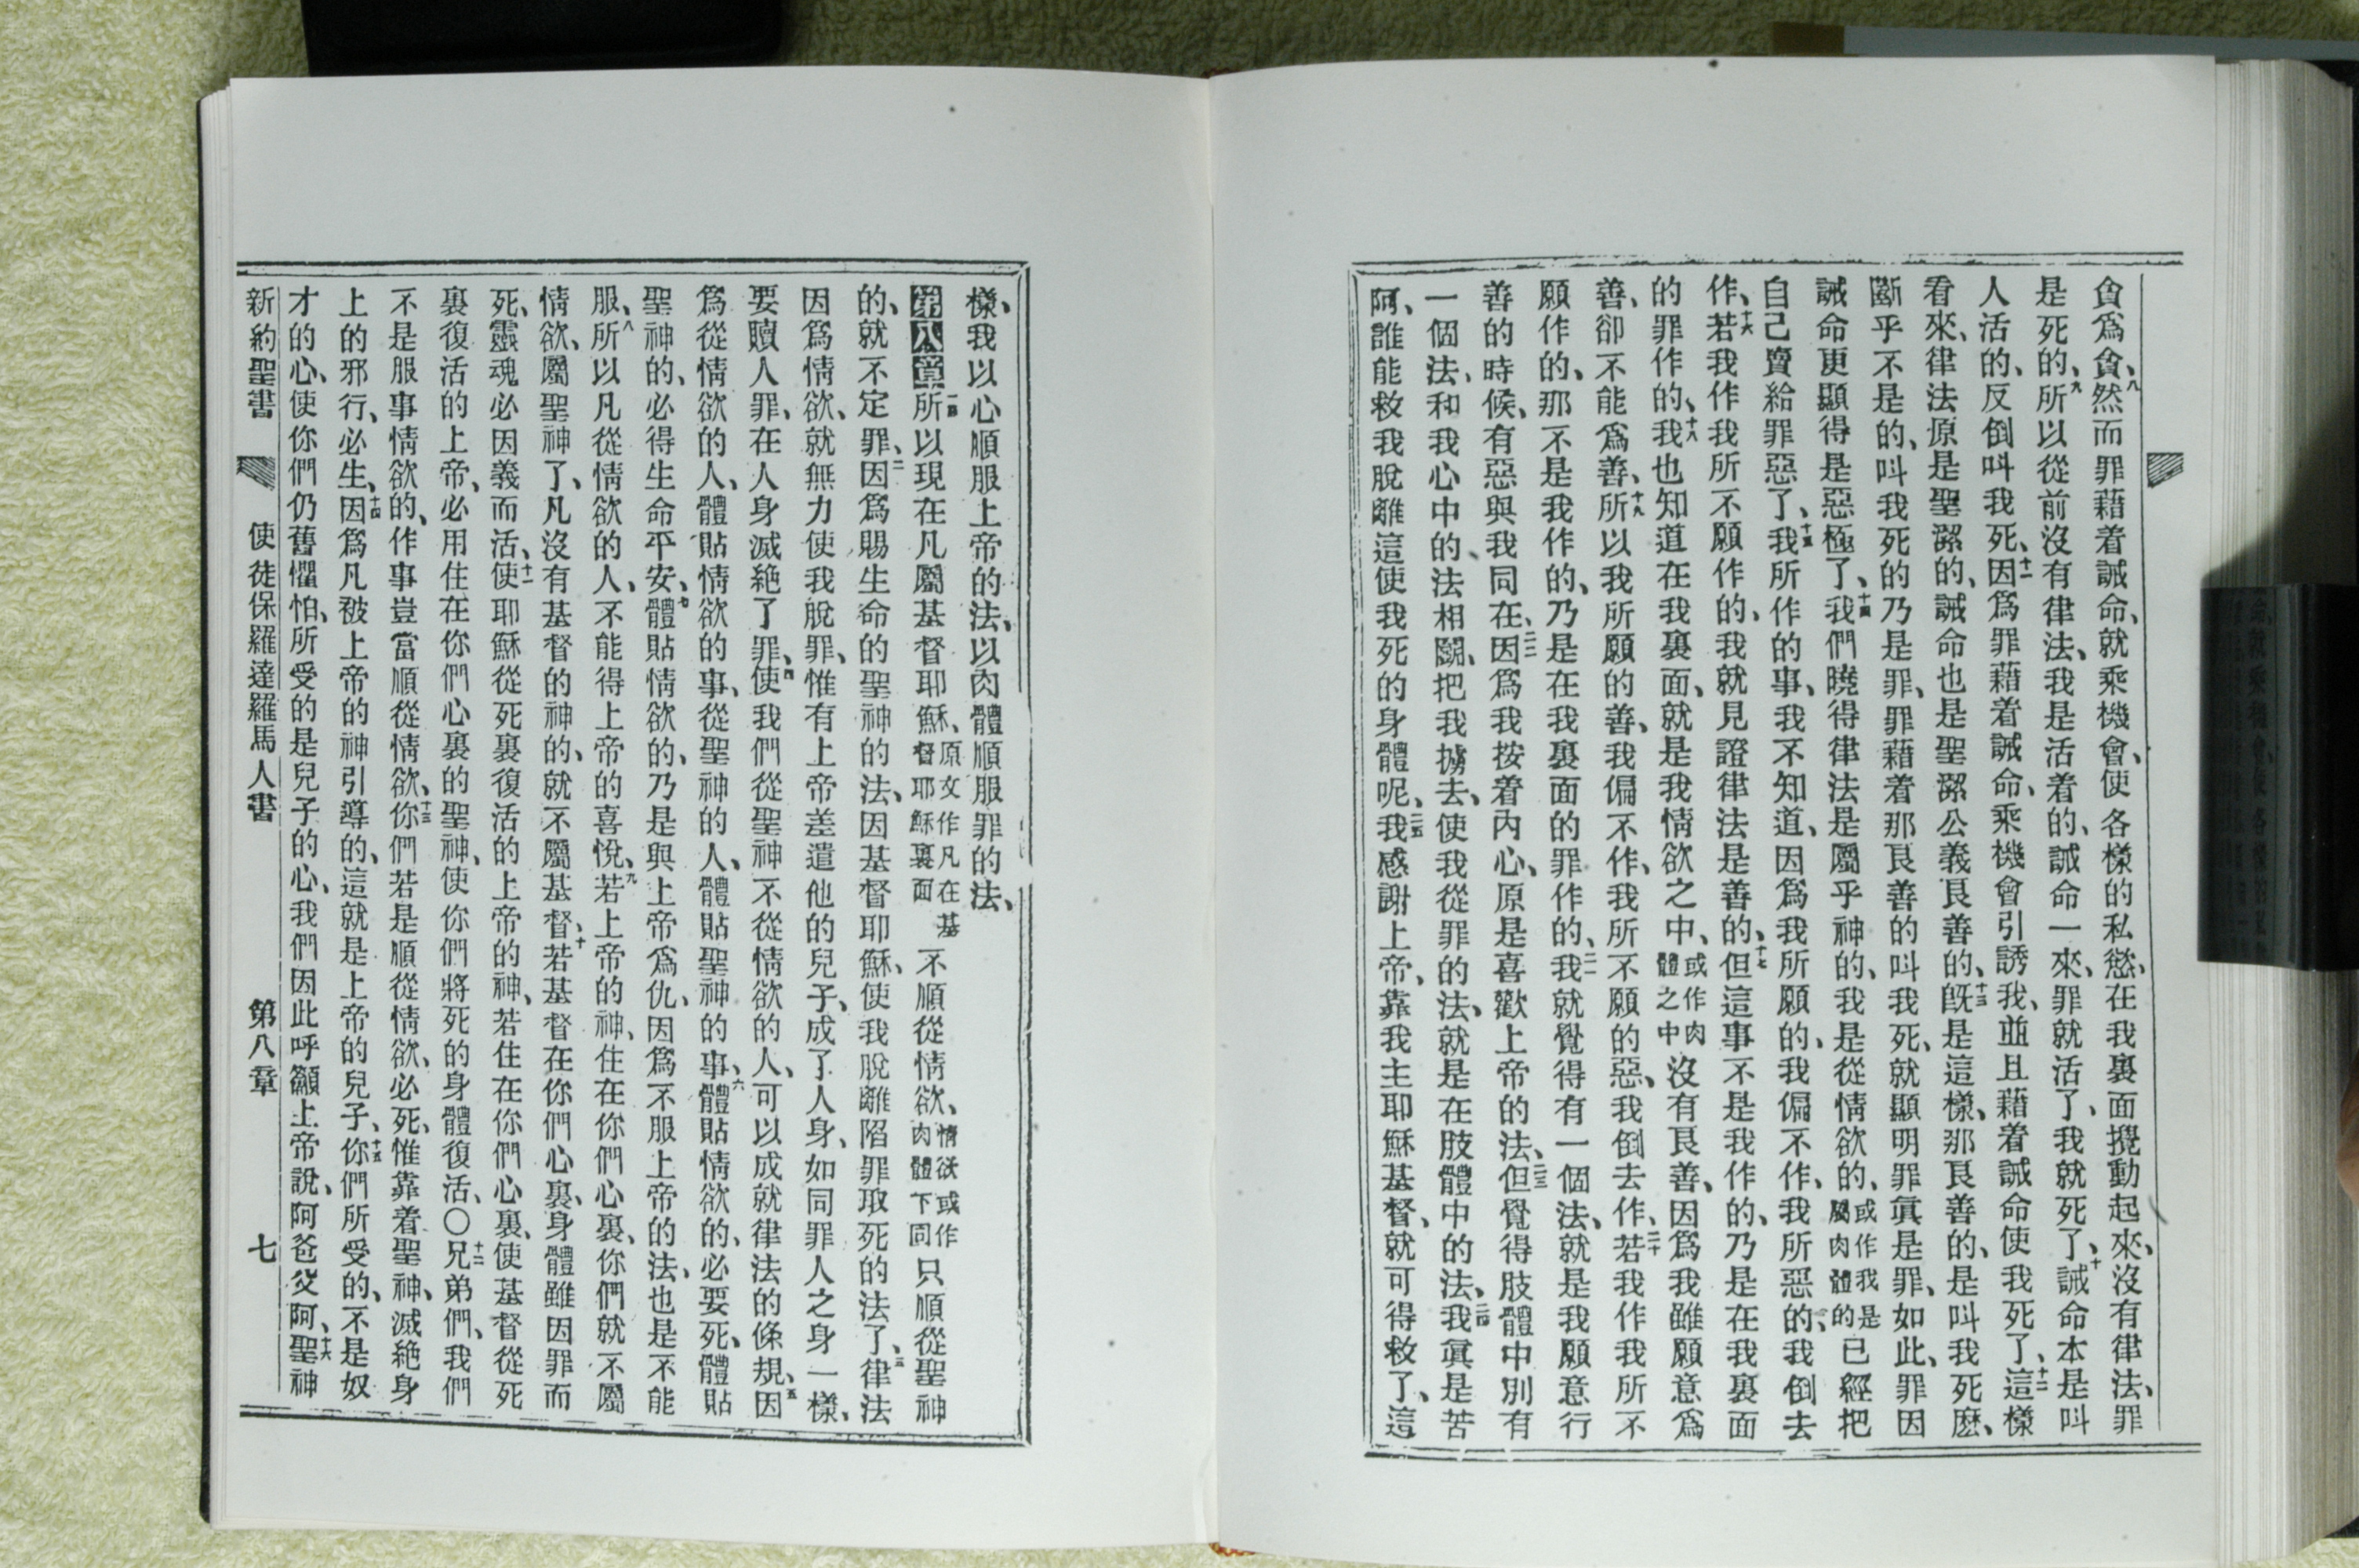 貪爲貪、八然而罪藉着誡命、就乘機會、使各樣的私慾、在我裏面攪動起來、沒有律法、罪
是死的、九所以從前沒有律法、我是活着的、誡命一來、罪就活了、我就死了、十誡命本是叫
人活的、反倒叫我死、十一因爲罪藉着誡命、乘機會引誘我、並且藉着誡命使我死了、十二這樣
看來、律法原是聖潔的、誡命也是聖潔公義良善的、十三旣是這樣、那良善的、是叫我死麽、
斷乎不是的、叫我死的乃是罪、罪藉着那良善的叫我死、就顯明罪眞是罪、如此、罪因
誡命更顯得是惡極了、十四我們曉得律法是屬乎神的、我是從情欲的、或作我是屬肉體的已經把
自己賣給罪惡了、十五我所作的事、我不知道、因爲我所願的、我偏不作、我所惡的、我倒去
作、十六若我作我所不願作的、我就見證律法是善的、十七但這事不是我作的、乃是在我裏面
的罪作的、十八我也知道在我裏面、就是我情欲之中、或作肉體之中沒有良善、因爲我雖願意爲
善、卻不能爲善、十九所以我所願的善、我偏不作、我所不願的惡、我倒去作、二十若我作我所不
願作的、那不是我作的、乃是在我裏面的罪作的、二一我就覺得有一個法、就是我願意行
善的時候、有惡與我同在、二二因爲我按着內心、原是喜歡上帝的法、二三但覺得肢體中別有
一個法、和我心中的法相鬭、把我擄去、使我從罪的法、就是在肢體中的法、二四我眞是苦
阿、誰能救我脫離這使我死的身體呢、二五我感謝上帝、靠我主耶穌基督、就可得救了、這
樣、我以心順服上帝的法、以肉體順服罪的法、
第八章一節所以現在凡屬基督耶穌、原文作凡在基督耶穌裏面不順從情欲、情欲或作肉體下同只順從聖神
的、就不定罪、二因爲賜生命的聖神的法、因基督耶穌、使我脫離陷罪取死的法了、三律法
因爲情欲、就無力使我脫罪、惟有上帝差遣他的兒子、成了人身、如同罪人之身一樣、
要贖人罪、在人身滅絕了罪、四使我們從聖神不從情欲的人、可以成就律法的條規、五因
爲從情欲的人、體貼情欲的事、從聖神的人、體貼聖神的事、六體貼情欲的、必要死、體貼
聖神的、必得生命平安、七體貼情欲的、乃是與上帝爲仇、因爲不服上帝的法、也是不能
服、八所以凡從情欲的人、不能得上帝的喜悅、九若上帝的神、住在你們心裏、你們就不屬
情欲、屬聖神了、凡沒有基督的神的、就不屬基督、十若基督在你們心裏、身體雖因罪而
死、靈魂必因義而活、十一使耶穌從死裏復活的上帝的神、若住在你們心裏、使基督從死
裏復活的上帝、必用住在你們心裏的聖神、使你們將死的身體復活、〇十二兄弟們、我們
不是服事情欲的、作事豈當順從情欲、十三你們若是順從情欲、必死、惟靠着聖神、滅絕身
上的邪行、必生、十四因爲凡被上帝的神引導的、這就是上帝的兒子、十五你們所受的、不是奴
才的心、使你們仍舊懼怕、所受的是兒子的心、我們因此呼籲上帝說、阿爸父阿、十六聖神
新約聖書 使徒保羅達羅馬人書 第八章 七